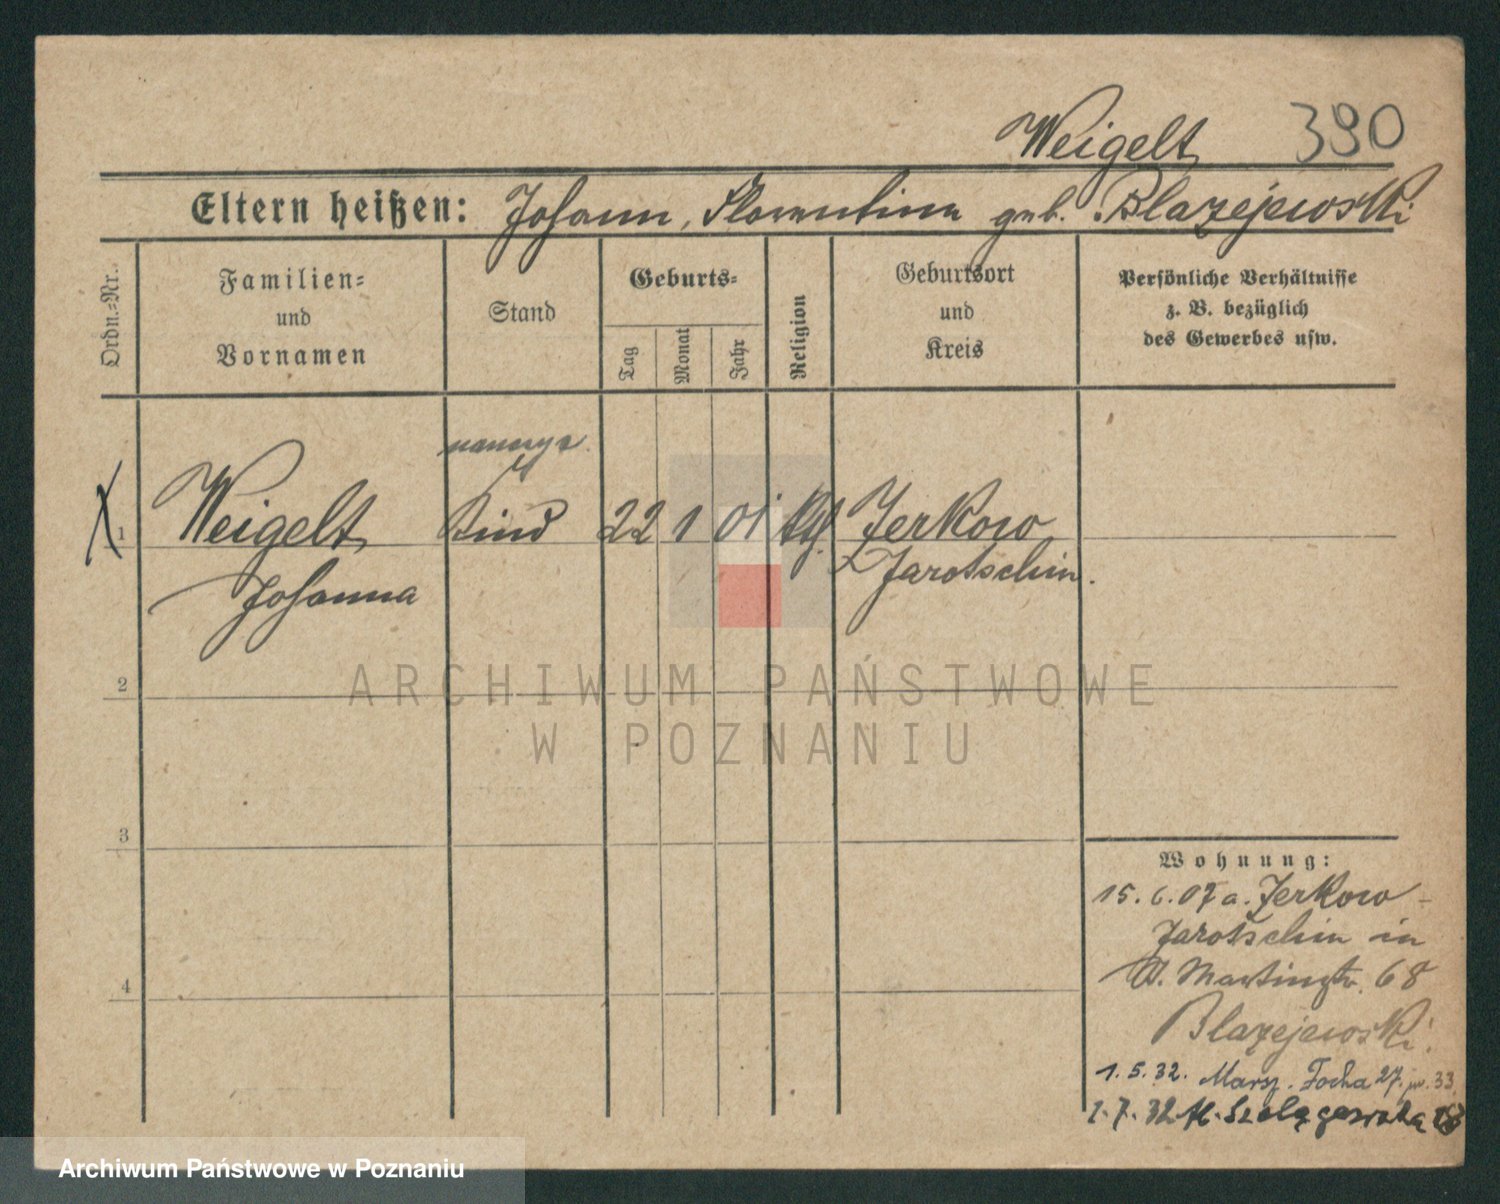 Weigelt 390
Eltern heißen: Johann, Florentina geb. Blazejewski
Ordn.-Nr.
Familien-
und
Vornamen
Stand
Geburts-
Tag
Monat
Jahr
Religion
Geburtsort
und
Kreis
Persönliche Verhältnisse
z. B. bezüglich
des Gewerbes usw.
X 1 Weigelt Kind 22 1 01 Jerkow
Johanna Jarotschin.
ARCHIWUM PAŃSTWOWE
W POZNANIU
2
3
4
Wohnung:
15.6.07 a. Jerkow -
Jarotschin in
St. Martinstr. 68
Blazejewski.
1.5.32. Marsz. Focha 27. 33
1.7.32 Al. Szelągowska
Archiwum Państwowe w Poznaniu